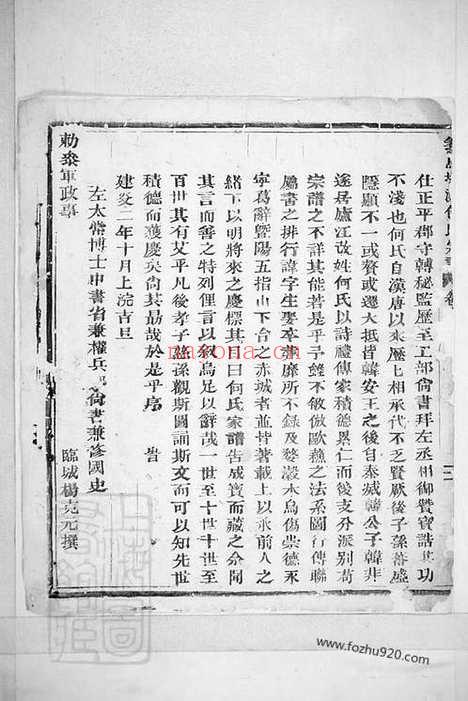 仕正平郡守轉秘監歷至工部尚書拜左丞相御贊寶誥其功
不淺也何氏自漢唐以來歷上相承代不乏賢厥後子孫蕃盛
隱顯不一或賛或遷大抵皆韓安王之後自秦滅韓公子韓非
遂居廬江改姓何氏以詩禮傳家積德累仁而後支分派別苟
宗譜之不詳其能若是乎予雖不敏倣歐蘇之法系圖行傳聯
屬書之排行諱字生娶卒葬靡所不錄及婺瀫木烏傷崇德永
寧葛辭暨陽五指山下台之赤城者並悖著載上以承前人之
緒下以明將來之慶標其目曰何氏家譜告成寳而藏之余聞
其言而善之特列俚言以叙烏足以辭哉一世至十世十世至
百世其有艾乎凡後孝子慈孫觀斯圖誦斯文而可以知先世
積德而獲慶矣尚其勗哉於是乎序 旹
建炎二年十月上浣吉旦
左太常博士中書省兼權兵部尚書兼修國史
勅叅軍政事 臨城楊克元撰
nasona.cn
www.fozhu920.com